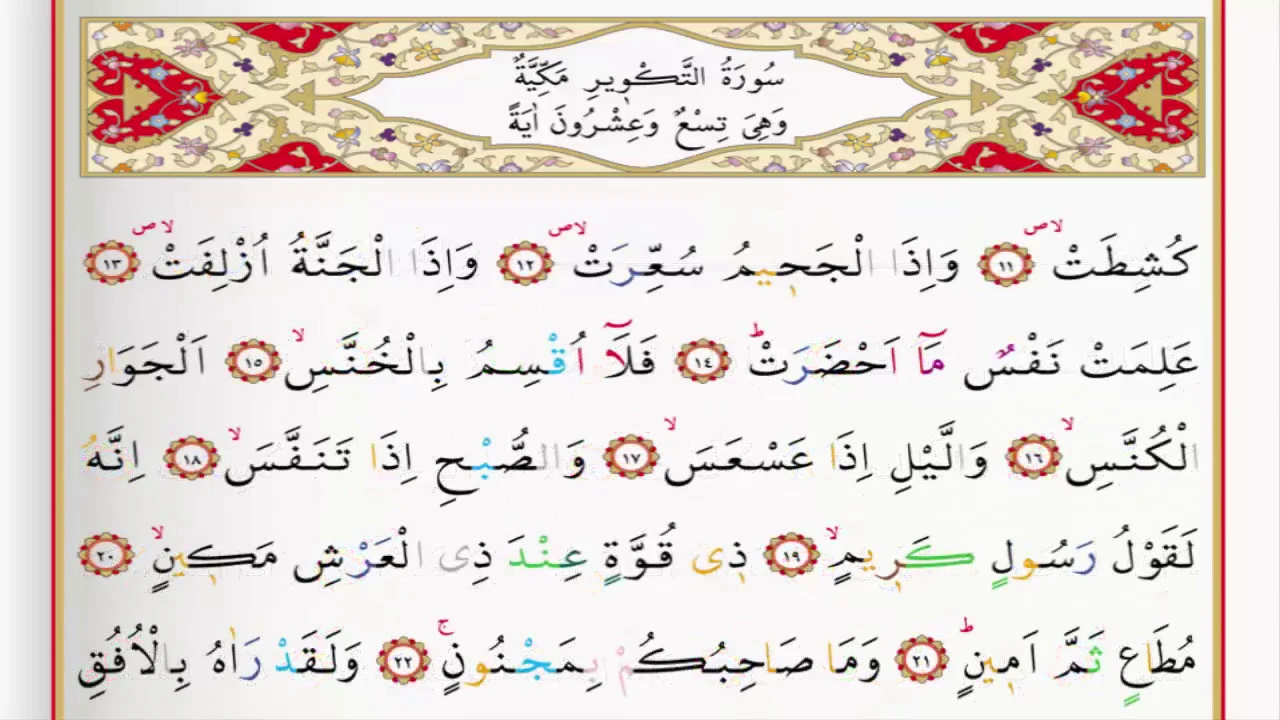 سُورَةُ التَّكْوِيرِ مَكِّيَّةٌ
وَهِىَ تِسْعٌ وَعِشْرُونَ اٰيَةً
كُشِطَتْۙۖ ﴿١١﴾ وَاِذَا الْجَحٖيمُ سُعِّرَتْۙۖ ﴿١٢﴾ وَاِذَا الْجَنَّةُ اُزْلِفَتْۙۖ ﴿١٣﴾
عَلِمَتْ نَفْسٌ مَٓا اَحْضَرَتْؕ ﴿١٤﴾ فَلَٓا اُقْسِمُ بِالْخُنَّسِۙ ﴿١٥﴾ اَلْجَوَارِ
الْكُنَّسِۙ ﴿١٦﴾ وَالَّيْلِ اِذَا عَسْعَسَۙ ﴿١٧﴾ وَالصُّبْحِ اِذَا تَنَفَّسَۙ ﴿١٨﴾ اِنَّهُ
لَقَوْلُ رَسُولٍ كَرٖيمٍۙ ﴿١٩﴾ ذٖى قُوَّةٍ عِنْدَ ذِى الْعَرْشِ مَكٖينٍۙ ﴿٢٠﴾
مُطَاعٍ ثَمَّ اَمٖينٍؕ ﴿٢١﴾ وَمَا صَاحِبُكُمْ بِمَجْنُونٍۚ ﴿٢٢﴾ وَلَقَدْ رَاٰهُ بِالْاُفُقِ